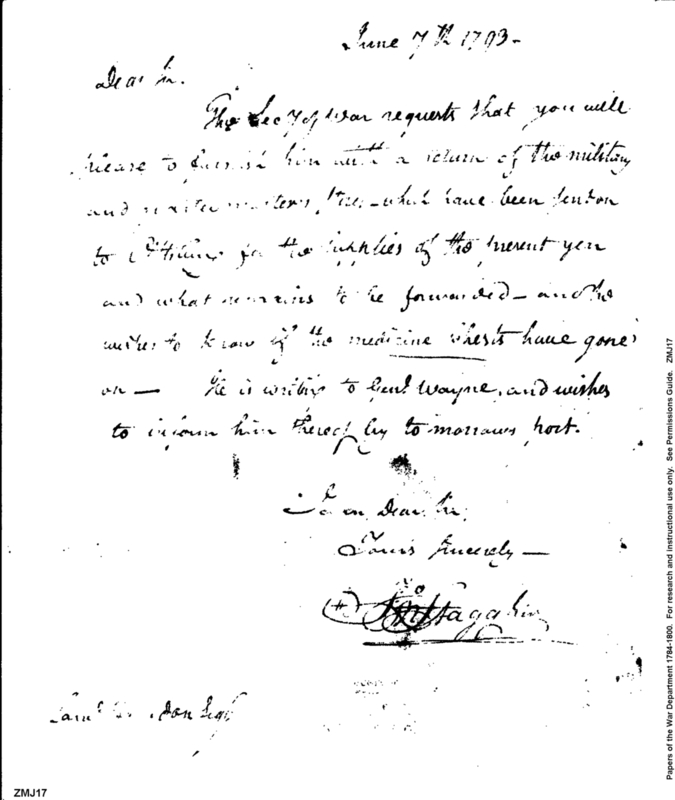 June 7th 1793-
Dear Sir.
The Secy of War requests that you will
please to furnish him with a return of the military
and quarter masters Stores - which have been sent on
to Pittsburg for the supplies of the present year
and what remains to be forwarded - and he
wishes to know if the medicine chests have gone
on — He is writing to Genl Wayne, and wishes
to inform him thereof by to morrows post.
I am Dear Sir,
Yours sincerely —
Stagg Junr
Saml Hodgdon Esqr
Papers of the War Department 1784-1800. For research and instructional use only. See Permissions Guide. ZMJ17
ZMJ17